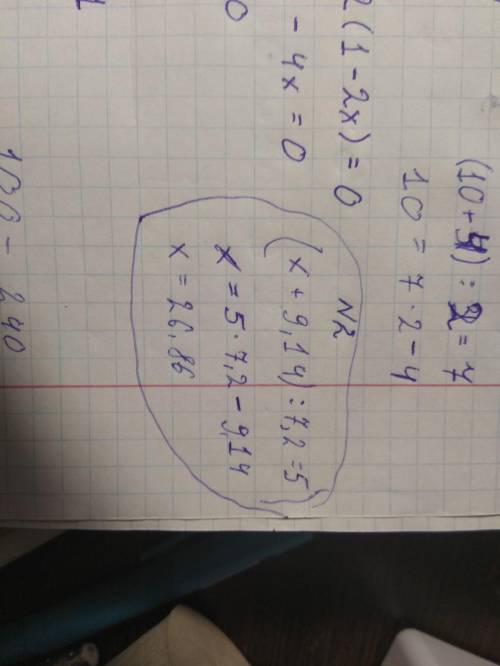 (10+4):2=7
10=7·2-4
2(1-2x)=0
-4x=0
0
N2
(x+9,14):7,2=5
x=5·7,2-9,14
x=26,86